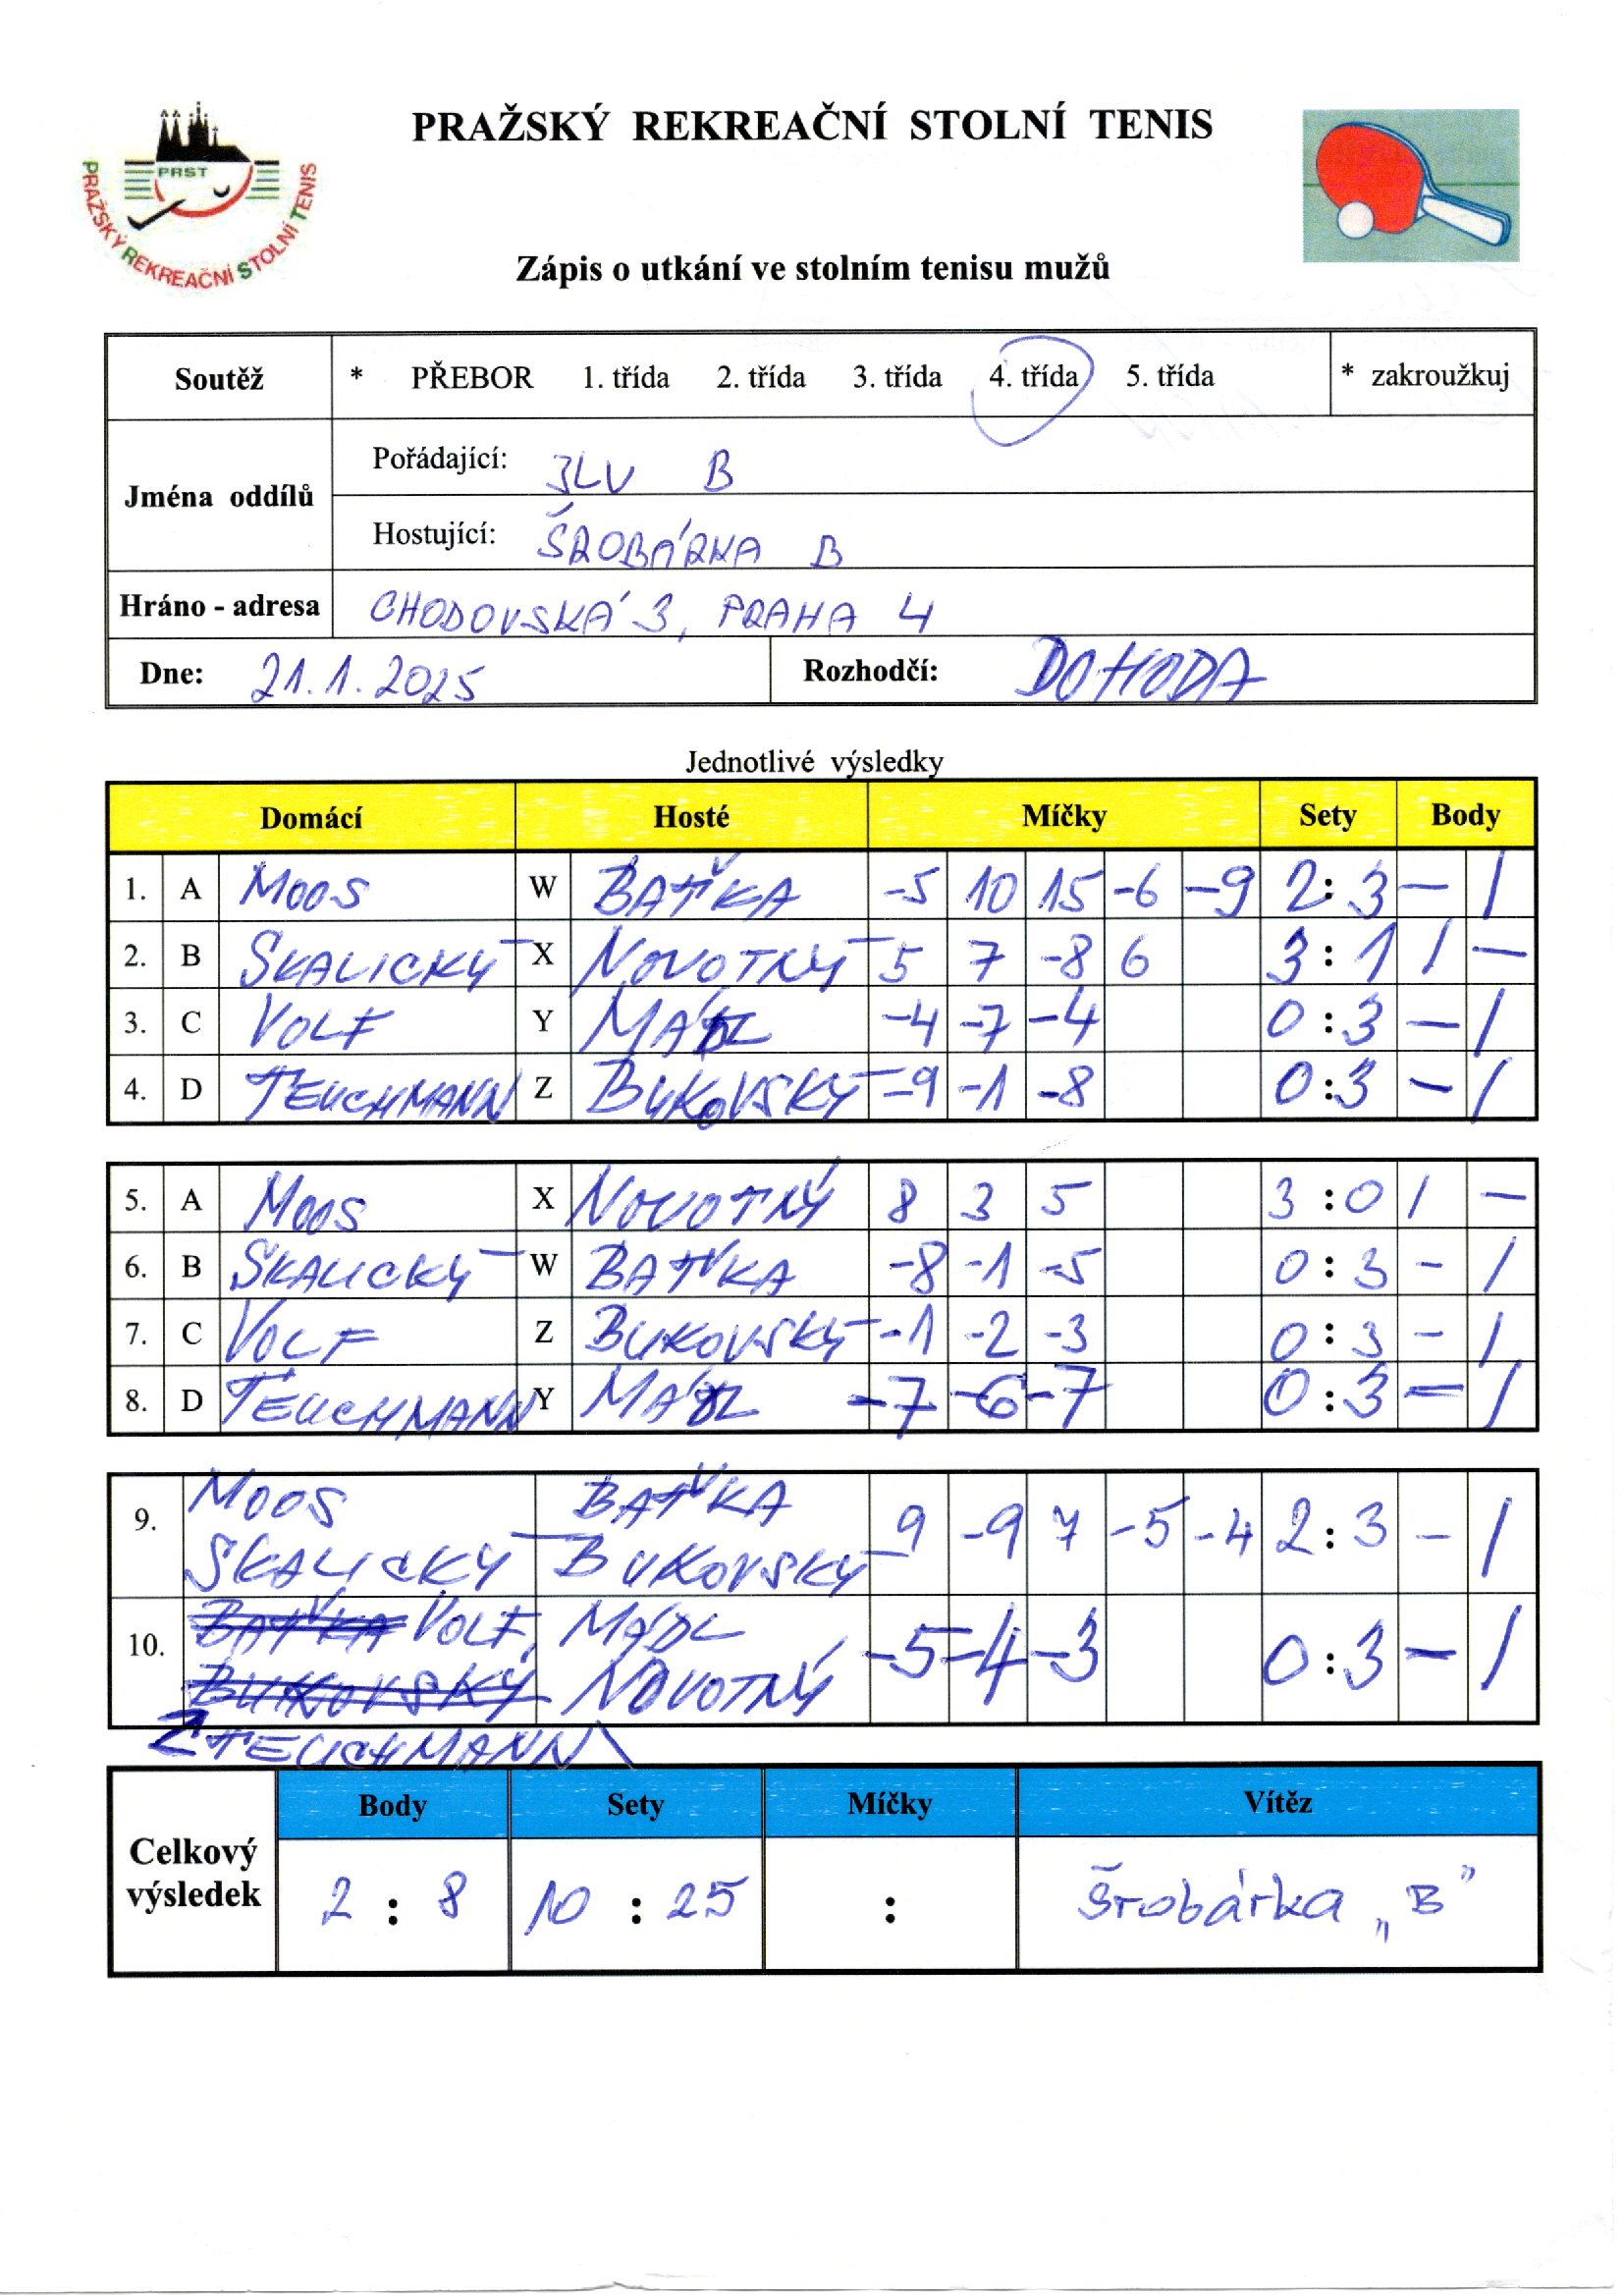 PRAŽSKÝ REKREAČNÍ STOLNÍ TENIS
PRST
PRAŽSKÝ REKREAČNÍ STOLNÍ TENIS
Zápis o utkání ve stolním tenisu mužů
Soutěž * PŘEBOR 1. třída 2. třída 3. třída 4. třída 5. třída * zakroužkuj
Jména oddílů
Pořádající: JLV B
Hostující: ŠROBÁRKA B
Hráno - adresa CHODOVSKÁ 3, PRAHA 4
Dne: 21.1.2025 Rozhodčí: DOHODA
Jednotlivé výsledky
Domácí Hosté Míčky Sety Body
1. A MOOS W BAŤKA -5 10 15 -6 -9 2:3 - 1
2. B SKALICKÝ X NOVOTNÝ 5 7 -8 6 3:1 1 -
3. C VOLF Y MÁDL -4 -7 -4 0:3 - 1
4. D TEUCHMANN Z BUKOVSKÝ -9 -1 -8 0:3 - 1
5. A MOOS X NOVOTNÝ 8 3 5 3:0 1 -
6. B SKALICKÝ W BAŤKA -8 -1 -5 0:3 - 1
7. C VOLF Z BUKOVSKÝ -1 -2 -3 0:3 - 1
8. D TEUCHMANN Y MÁDL -7 -6 -7 0:3 - 1
9. MOOS BAŤKA 9 -9 7 -5 -4 2:3 - 1
SKALICKÝ BUKOVSKÝ
10. BAŤKA VOLF, MÁDL -5 -4 -3 0:3 - 1
BUKOVSKÝ NOVOTNÝ
TEUCHMANN
Celkový výsledek
Body Sety Míčky Vítěz
2 : 8 10 : 25 : Šrobárka „B"